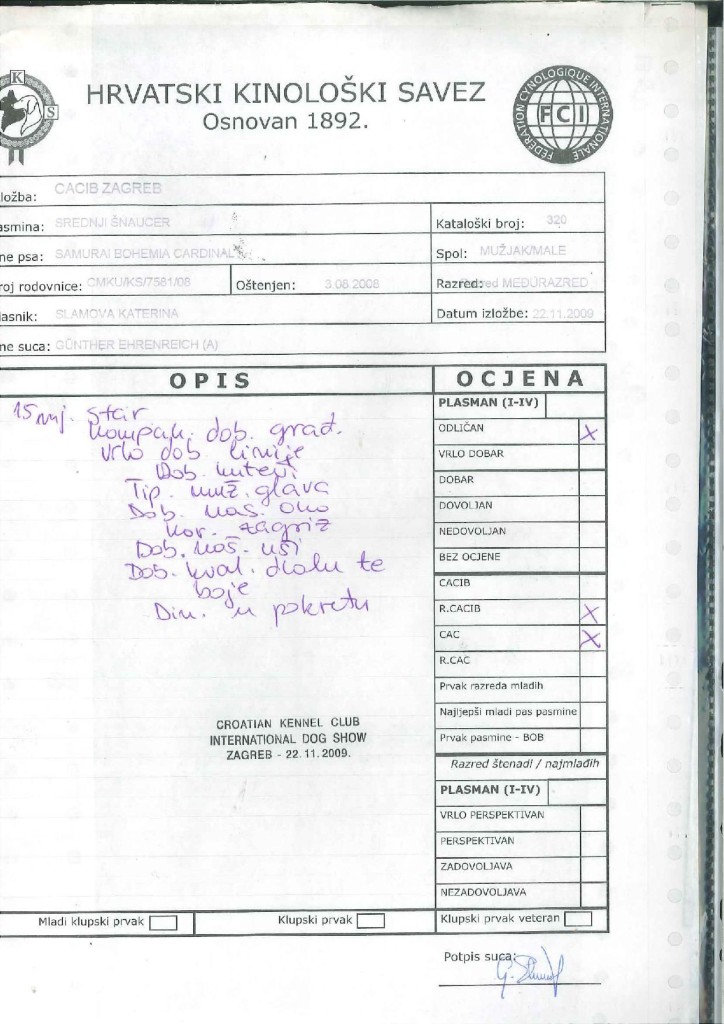 K
S
HRVATSKI KINOLOŠKI SAVEZ
Osnovan 1892.
FEDERATION CYNOLOGIQUE INTERNATIONALE
FCI
ložba: CACIB ZAGREB
asmina: SREDNJI ŠNAUCER
Kataloški broj: 320
ne psa: SAMURAI BOHEMIA CARDINAL
Spol: MUŽJAK/MALE
roj rodovnice: CMKU/KS/7581/08
Oštenjen: 3.08.2008
Razred: MEĐURAZRED
lasnik: SLAMOVA KATERINA
Datum izložbe: 22.11.2009
ne suca: GÜNTHER EHRENREICH (A)
OPIS
OCJENA
15 mj. star
kompak. dob. građ.
vrlo dob linije
Dob. kutevi
Tip. muž. glava
Dob. nas. oko
Kor. zagriz
Dob. noš. uši
Dob. kval. dlake te
boje
Din. u pokretu
PLASMAN (I-IV)
ODLIČAN X
VRLO DOBAR
DOBAR
DOVOLJAN
NEDOVOLJAN
BEZ OCJENE
CACIB
R.CACIB X
CAC X
R.CAC
Prvak razreda mladih
Najljepši mladi pas pasmine
Prvak pasmine - BOB
Razred štenadi / najmlađih
PLASMAN (I-IV)
VRLO PERSPEKTIVAN
PERSPEKTIVAN
ZADOVOLJAVA
NEZADOVOLJAVA
CROATIAN KENNEL CLUB
INTERNATIONAL DOG SHOW
ZAGREB - 22.11.2009.
Mladi klupski prvak
Klupski prvak
Klupski prvak veteran
Potpis suca: